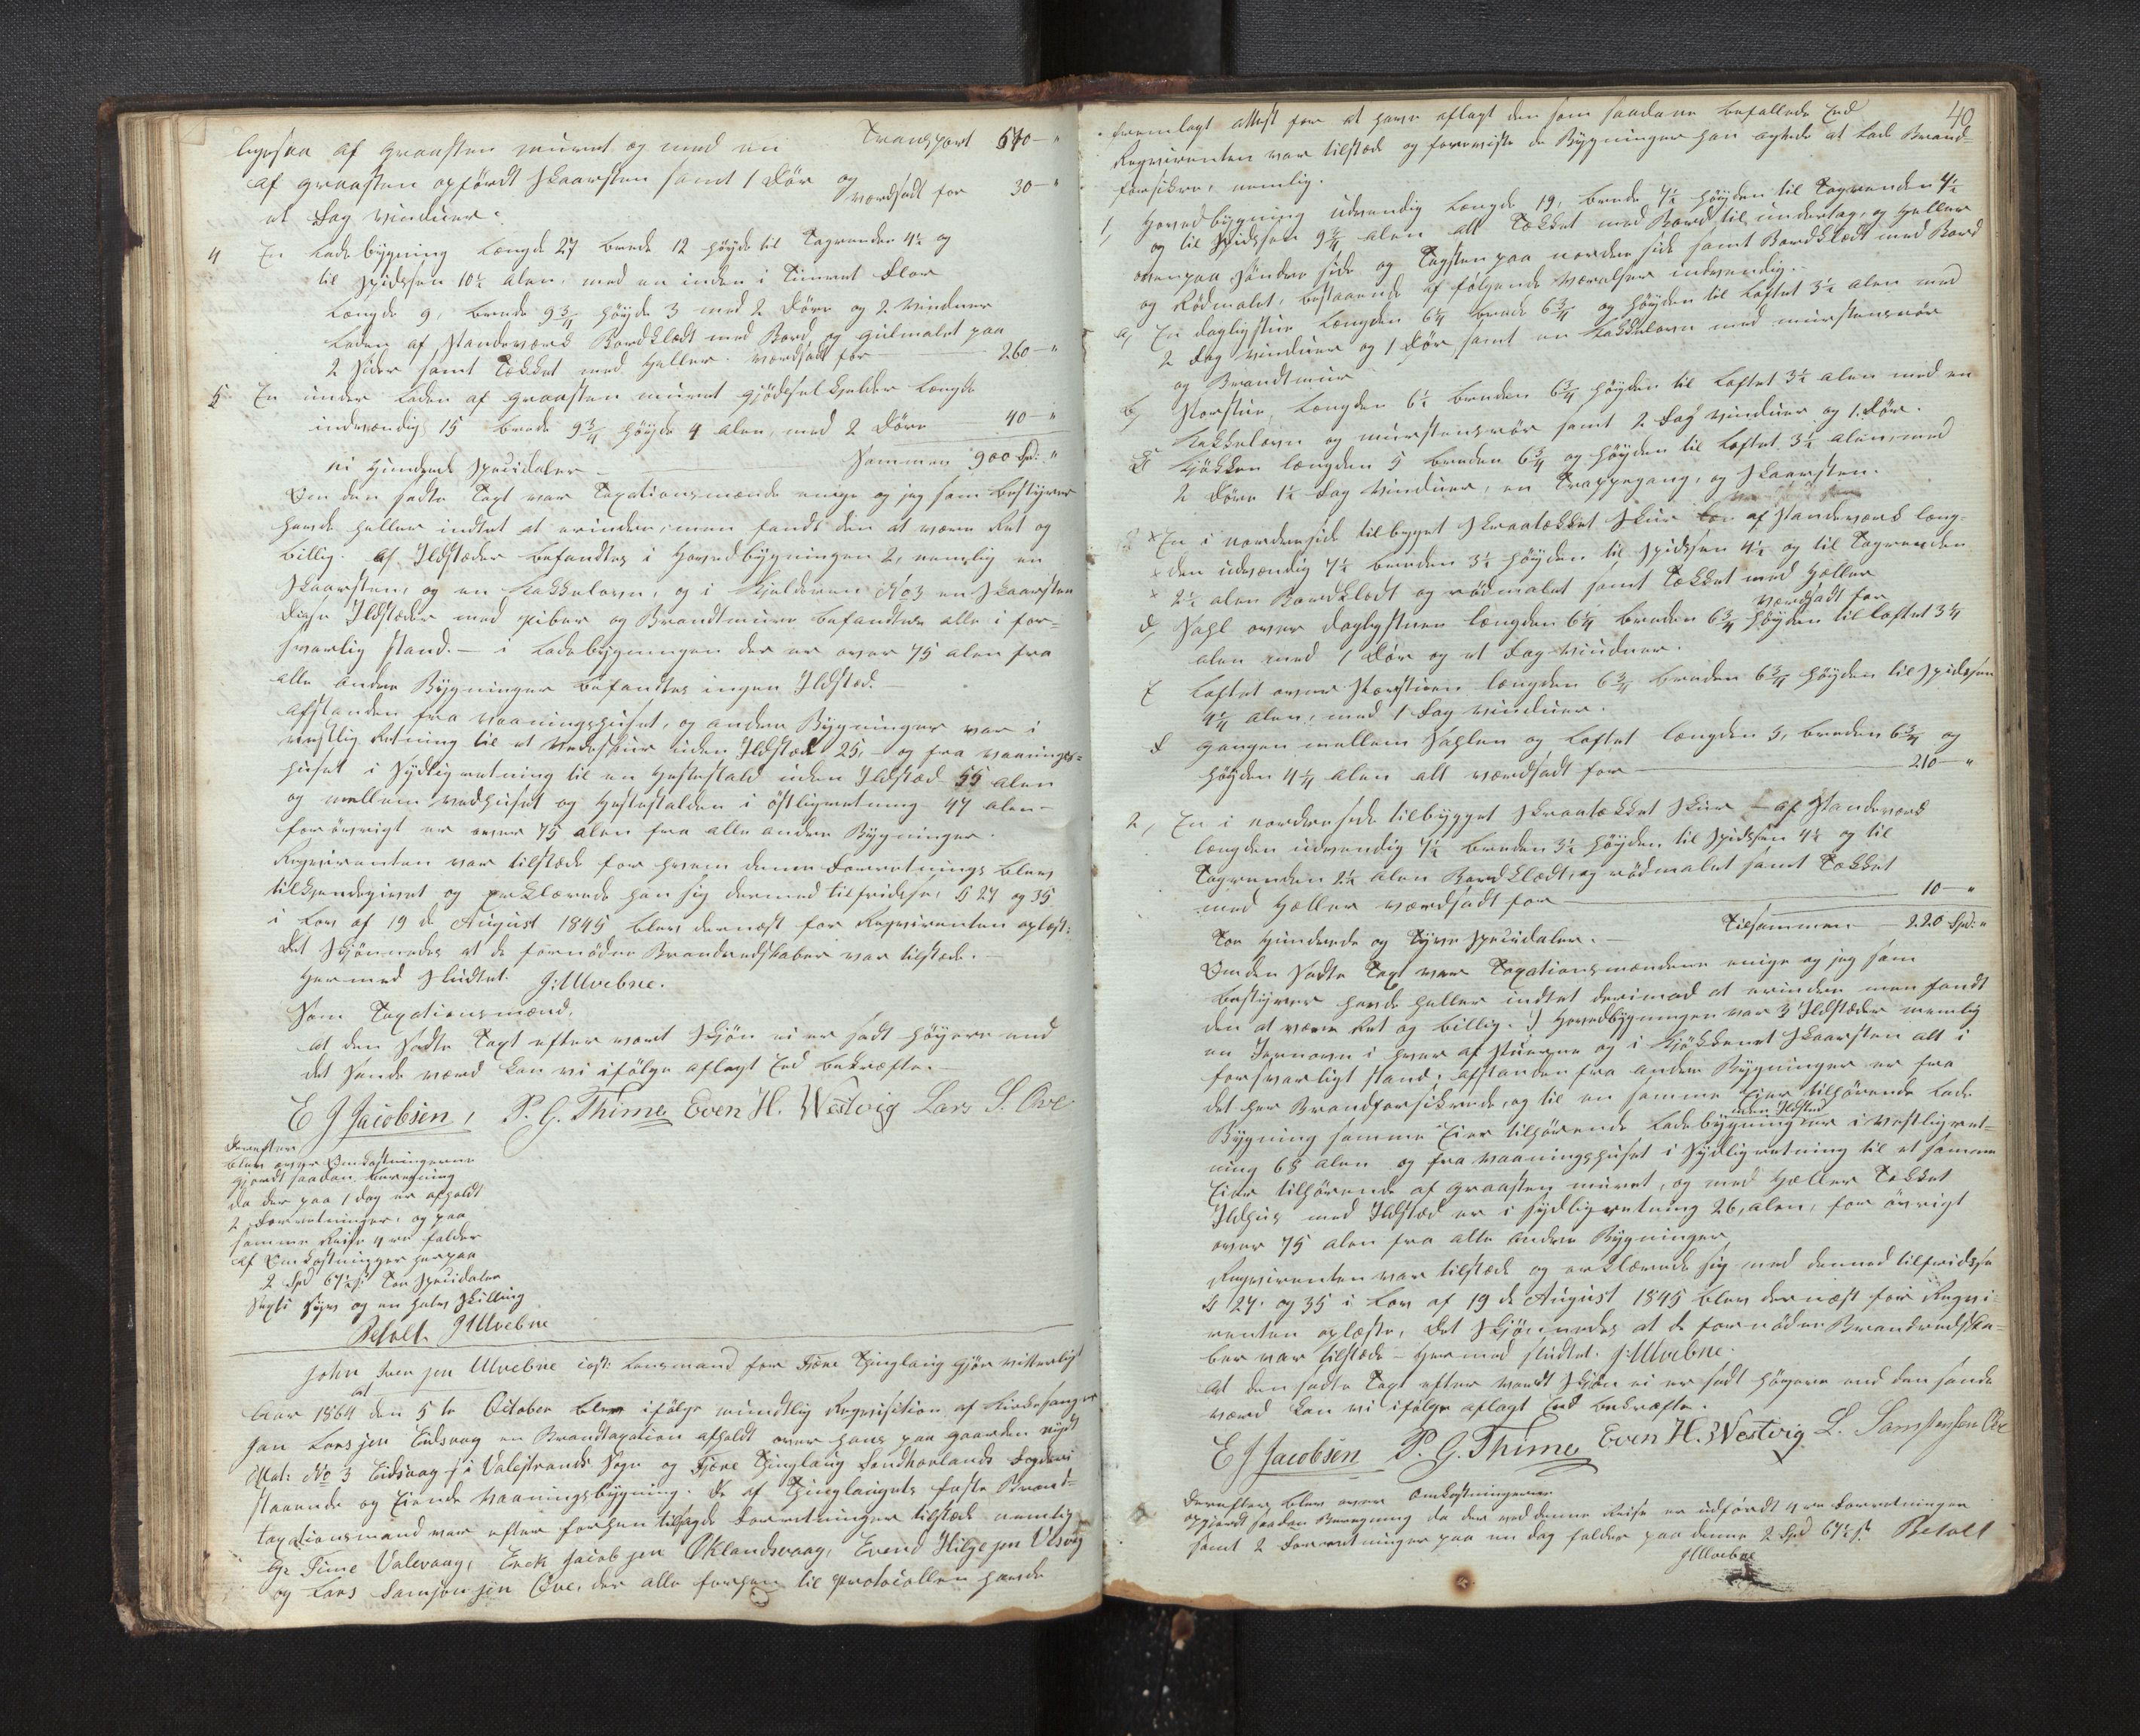 Transport 570 — "
ligesaa af Graasten muret og med en
af Graasten opført Skaarsten samt 1 Dør og
et Fag Vinduer. værdsadt for 30 — "
4 En Ladebygning Længde 27 Brede 12 høyde til Tagrenden 4½ og
til Spidssen 10½ Alen, med en inden i Timret Flor
Længde 9, Brede 9¾ høyde 3 med 2 Døre og 2 Vinduer
Laden af Standeværk Bordklædt med Bord og gulmalet paa
2 Sider samt Tækket med Heller. værdsadt for — 260 — "
5 En under Laden af Graasten muret Gjødselkjelder Længde
indvendig 15 Brede 9¾ høyde 4 Alen, med 2 Døre 40 — "
Sammen 900 Spd: "
ni Hundrede Specidaler —
Om den sadte Taxt var Taxationsmænde enige og jeg som Bestyrer
havde heller indtet at erindre, men fandt den at være Ret og
billig. Af Ildstæder befandtes i Hovedbygningen 2, nemlig en
Skaarsten, og en Kakkelovn, og i Kjelderen No 3 en Skaarsten
Disse Ildstæder med Piber og Brandtmure befandtes alle i for-
svarlig Stand. — i Ladebygningen der er over 75 Alen fra
alle andre Bygninger befandtes ingen Ildsted. —
Afstanden fra Vaaningshuset, og andre Bygninger var i
vestlig Retning til et Vedeskur uden Ildsted 25, — og fra Vaanings-
huset i Sydlig retning til en Hestestald uden Ildsted 55 Alen
og mellem Vedhuset og Hestestalden i østligretning 47 Alen —
forøvrigt er over 75 Alen fra alle andre Bygninger.
Reqvirenten var tilstede for hvem denne Forretnings blev
tilkjendegivet og erklærede han sig dermed tilfridse, § 27 og 35
i Lov af 19 de August 1845 blev dernæst for Reqvirenten oplæst:
Det skjønnedes at de fornødne Brandredskaber var tilstede. —
Hermed Sludtet. J: Ulvebne.
Som Taxationsmænd,
At den Sadte Taxt efter vort Skjøn ei er sadt høyere end
det Sande værd kan vi ifølge aflagt Eed bekræfte. —
E J Jacobsen, P. G. Thime Even H. Westvig Lars S. Ove
Derefter
blev over Omkostningerne
gjordt saadan Beregning
da der paa 1 dag er afholdt
2 Forretninger, og paa
samme Reise 4re falder
af Omkostninger herpaa
2 Spd 67½ s Toe Specidaler
Sexti Syv og en halv Skilling
Betalt. J Ulvebne
John Iversen Ulvebne const: Lensmand for Fjære Thinglaug Gjør vitterligt
at
Aar 1864 den 5 te October blev ifølge mundtlig Reqvisition af Kirkesanger
Jan Larsen Eidsvaag en Brandtaxation afholdt over hans paa Gaarden nydt
Mat: No 3 Eidsvaag i Valestrands Sogn og Fjære Thinglaug Søndhorlands Fogderi
staaende og Eiende Vaaningsbygning. De af Thinglaugets faste Brand-
taxationsmænd var efter forhen tilsagde Forretninger tilstede nemlig
Gr Time Valevaag, Erek Jacobsen Oklandsvaag, Evend Hilgesen Vesvig
og Lars Samsonsen Ove, der alle forhen til Protocollen havde
40
fremlagt attest for at have aflagt den som saadane befallede Eed
Reqvirenten var tilstede og foreviste de Bygninger han agtede at lade Brand-
forsikre, nemlig.
1, Hovedbygning udvendig Længde 19, Brede 7½ høyden til Tagrenden 4½
og til Spidssen 9¾ Alen alt Tækket med Bord til undertag, og Heller
ovenpaa Søndre side og Tagsten paa nordre side samt Bordklædt med Bord
og Rødmalet, bestaaende af følgende Værelser indvendig. —
a, En dagligstue Længden 6¼ Brede 6¾ og høyden til Loftet 3½ Alen med
2 Fag Vinduer og 1 Dør, samt en Kakkelovn med murstensrør
og Brandtmur
b, Storstue, Længden 6½ Breden 6¾ høyden til Loftet 3½ Alen med en
Kakkelovn og murstensrør samt 2 Fag Vinduer og 1 Dør.
c Kjøkken længden 5 breden 6¾ og høyden til Loftet 3½ Alen, med
2 Døre 1½ Fag Vinduer, en Trappegang, og Skaarsten.
× En i nordreside tilbyget Skraatækket Skur af Standeværk læng-
× den udvendig 7½ breden 3½ høyden til Spidssen 4½ og til Tagrenden
× 2½ Alen Bordklædt og rødmalet samt Tækket med Heller
værdsadt for
d, Sahl over dagligstuen længden 6¼ breden 6¾ høyden til loftet 3¼
Alen med 1 Dør og et Fag Vinduer.
E Loftet over Storstuen længden 6¾ breden 6¾ høyden til Spidssen
4¼ Alen, med 1 Fag Vinduer.
F Gangen mellem Sahlen og Loftet længden 5, breden 6¾ og
høyden 4¼ Alen alt værdsadt for — 210 — "
2, En i nordreside tilbygget Skraatækket Skur — af Standeværk
længden udvendig 7½ breden 3½ høyden til Spidssen 4½ og til
Tagrenden 2½ Alen Bordklædt, og rødmalet samt Tækket
med Heller værdsadt for — 10 — "
Tilsammen — 220 Spd: "
Toe Hundrede og Tyve Specidaler. —
Om den Sadte Taxt var Taxationsmændene enige og jeg som
bestyrer havde heller indtet derimod at erindre men fandt
den at være Ret og billig. I Hovedbygningen var 3 Ildstæder nemlig
en Jernovn i hver af Stuerne og i Kjøkkenet Skaarsten alt i
forsvarligt Stand, Afstanden fra andre Bygninger er fra
det her Brandforsikrede, og til en samme Eier tilhørende Lade
uden Ildsted
Bygning samme Eier tilhørende Ladebygning er i vestligret-
ning 68 Alen og fra Vaaningshuset i Sydligretning til et samme
Eier tilhørende af Graasten muret, og med Heller Tækket
Ildhus med Ildsted er i Sydligretning 26, Alen, for øvrigt
over 75 Alen fra alle andre Bygninger,
Reqvirenten var tilstede og erklærede sig med denned tilfridsse
§ 27. og 35 i Lov af 19 de August 1845 blev dernæst for Reqvi-
renten oplæste, Det Skjønnedes at de fornødne Brandredska-
ber var tilstede — Hermed sludtet. J: Ulvebne.
At den sadte Taxt efter vordt Skjøn ei er sadt høyere end den sande
værd kan vi ifølge aflagt Eed bekræfte.
E J Jacobsen P. G. Thime Even H. Westvig L. Samsonsen Ove
Derefter blev over Omkostningerne
opgjordt saadan Beregning da der ved denne Reise er udført 4re Forretninger
samt 2 Forretninger paa en dag falder paa denne 2 Spd 67½ s. Betalt
J Ulvebne